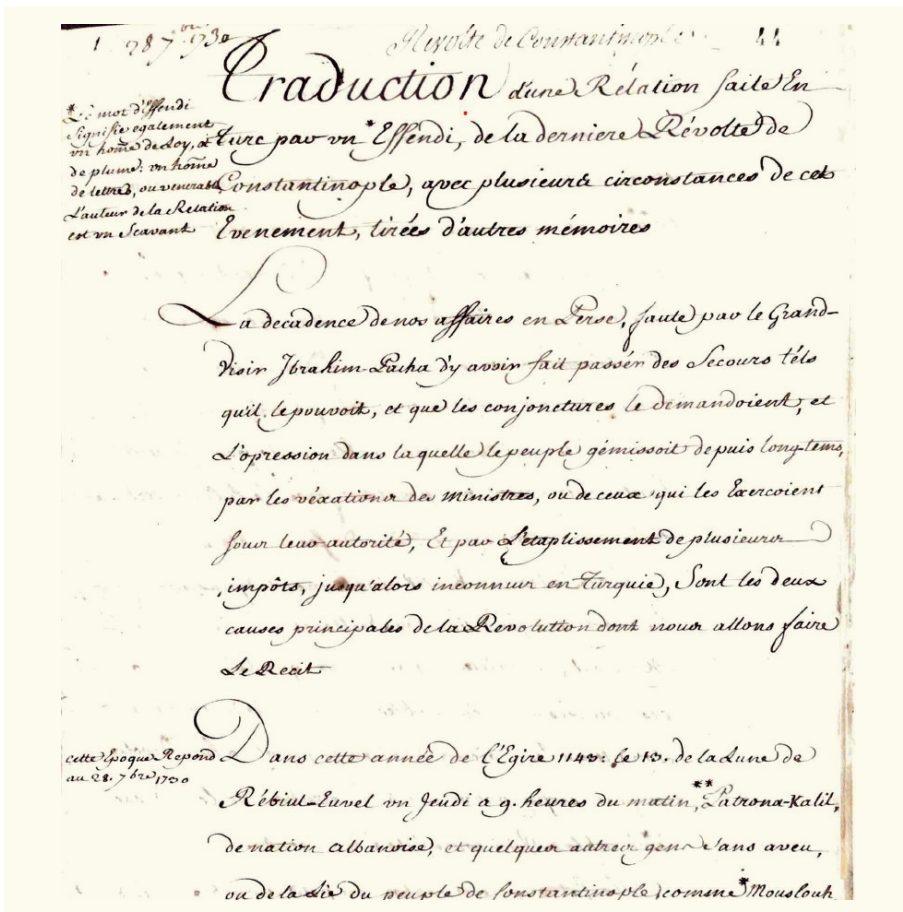 1 28 7bre 1730
Revolte de Constantinople
44
Traduction d'une Rélation faite En
turc par vn * Effendi, de la derniere Révolte de
Constantinople, avec plusieurs circonstances de cet
Evenement, tirées d'autres mémoires
* Le mot d'Effendi
signifie egalement
vn home de Loy, et
de plume: vn home
de lettres, ou venerable
L'auteur de la Relation
est vn Scavant
La decadence de nos affaires en Perse, faute par le Grand-
Visir Jbrahim-Pacha d'y avoir fait passér des Secours téls
qu'il le pouvoit, et que les conjonctures le demandoient, et
L'opression dans la quelle le peuple gémissoit depuis long-tems,
par les véxations des ministres, ou de ceux qui les Exercoient
sous leur autorité, Et par L'etaplissement de plusieurs
impôts, jusqu'alors inconnus en Turquie, Sont les deux
causes principales de la Revolution dont nous allons faire
Le Recit
cette Epoque Repond
au 28. 7bre 1730
Dans cette année de l'Egire 1143. le 15. de la Lune de
Rébiul-Euvel vn Jeudi a 9. heures du matin, ** Patrona-Kalil,
de nation albanoise, et quelques autres gens sans aveu,
ou de la Lie du peuple de Constantinople comme * Mouslouh